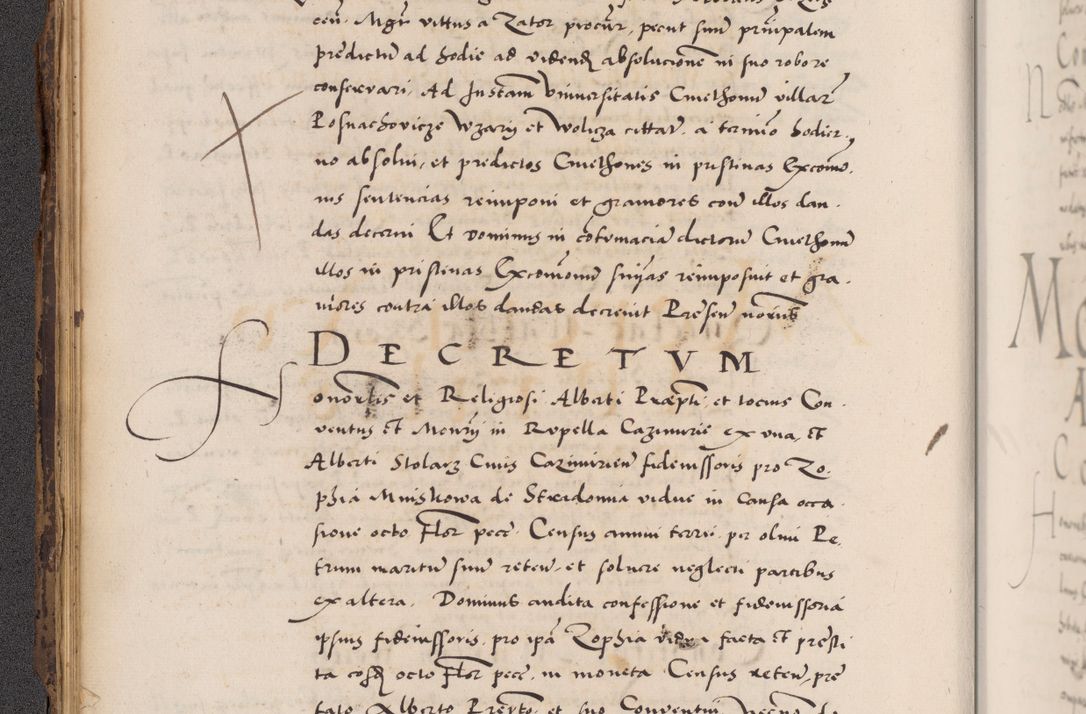 ceñ. Mgr̃ vittus a Zator procur̃, pecut suũ principalem
predictũ ad hodie ad videnđ absolucionẽ in suo robore
conservari. Ad Instam̃ Vniversitatis Cmethonũ villar̃
Posnachovicze Wzary et Wolicza cittar̃. a termino hodier
no absolui, et predictos Cmethones in pristinas Excom̃o
nis sentencias reimponi et graviores con̄ illos dan
das decerni Et dominus in cõtumacia dictorũ Cmethonũ
illos in pristinas Excom̃onũ snĩas reimposuit et gra
viores contra illos dandas decrevit Presen̄
DECRETVM
Honorbilis et Religiosi Alberti Præpti, et tocius Con
ventus et Monrÿ in Rupella Cazimirie ex vna, et
Alberti Stolarz Civis Cazimirien̄ fideiussoris pro Zo
phia Mniskowa de Stradomia vidue in Causa occa
sione octo Flor̃ pece Census annui terrii per olim Pe
trum maritũ suũ reten̄, et soluere neglecti partibus
ex altera. Dominus audita confessione et fideiussoria
ipsius fideiussoris, pro ipa Zophia vidua facta et presti
ta cosđ octo Flor̃ pece, in moneta Census reten̄, pre
fato Alberto et suo Conventui